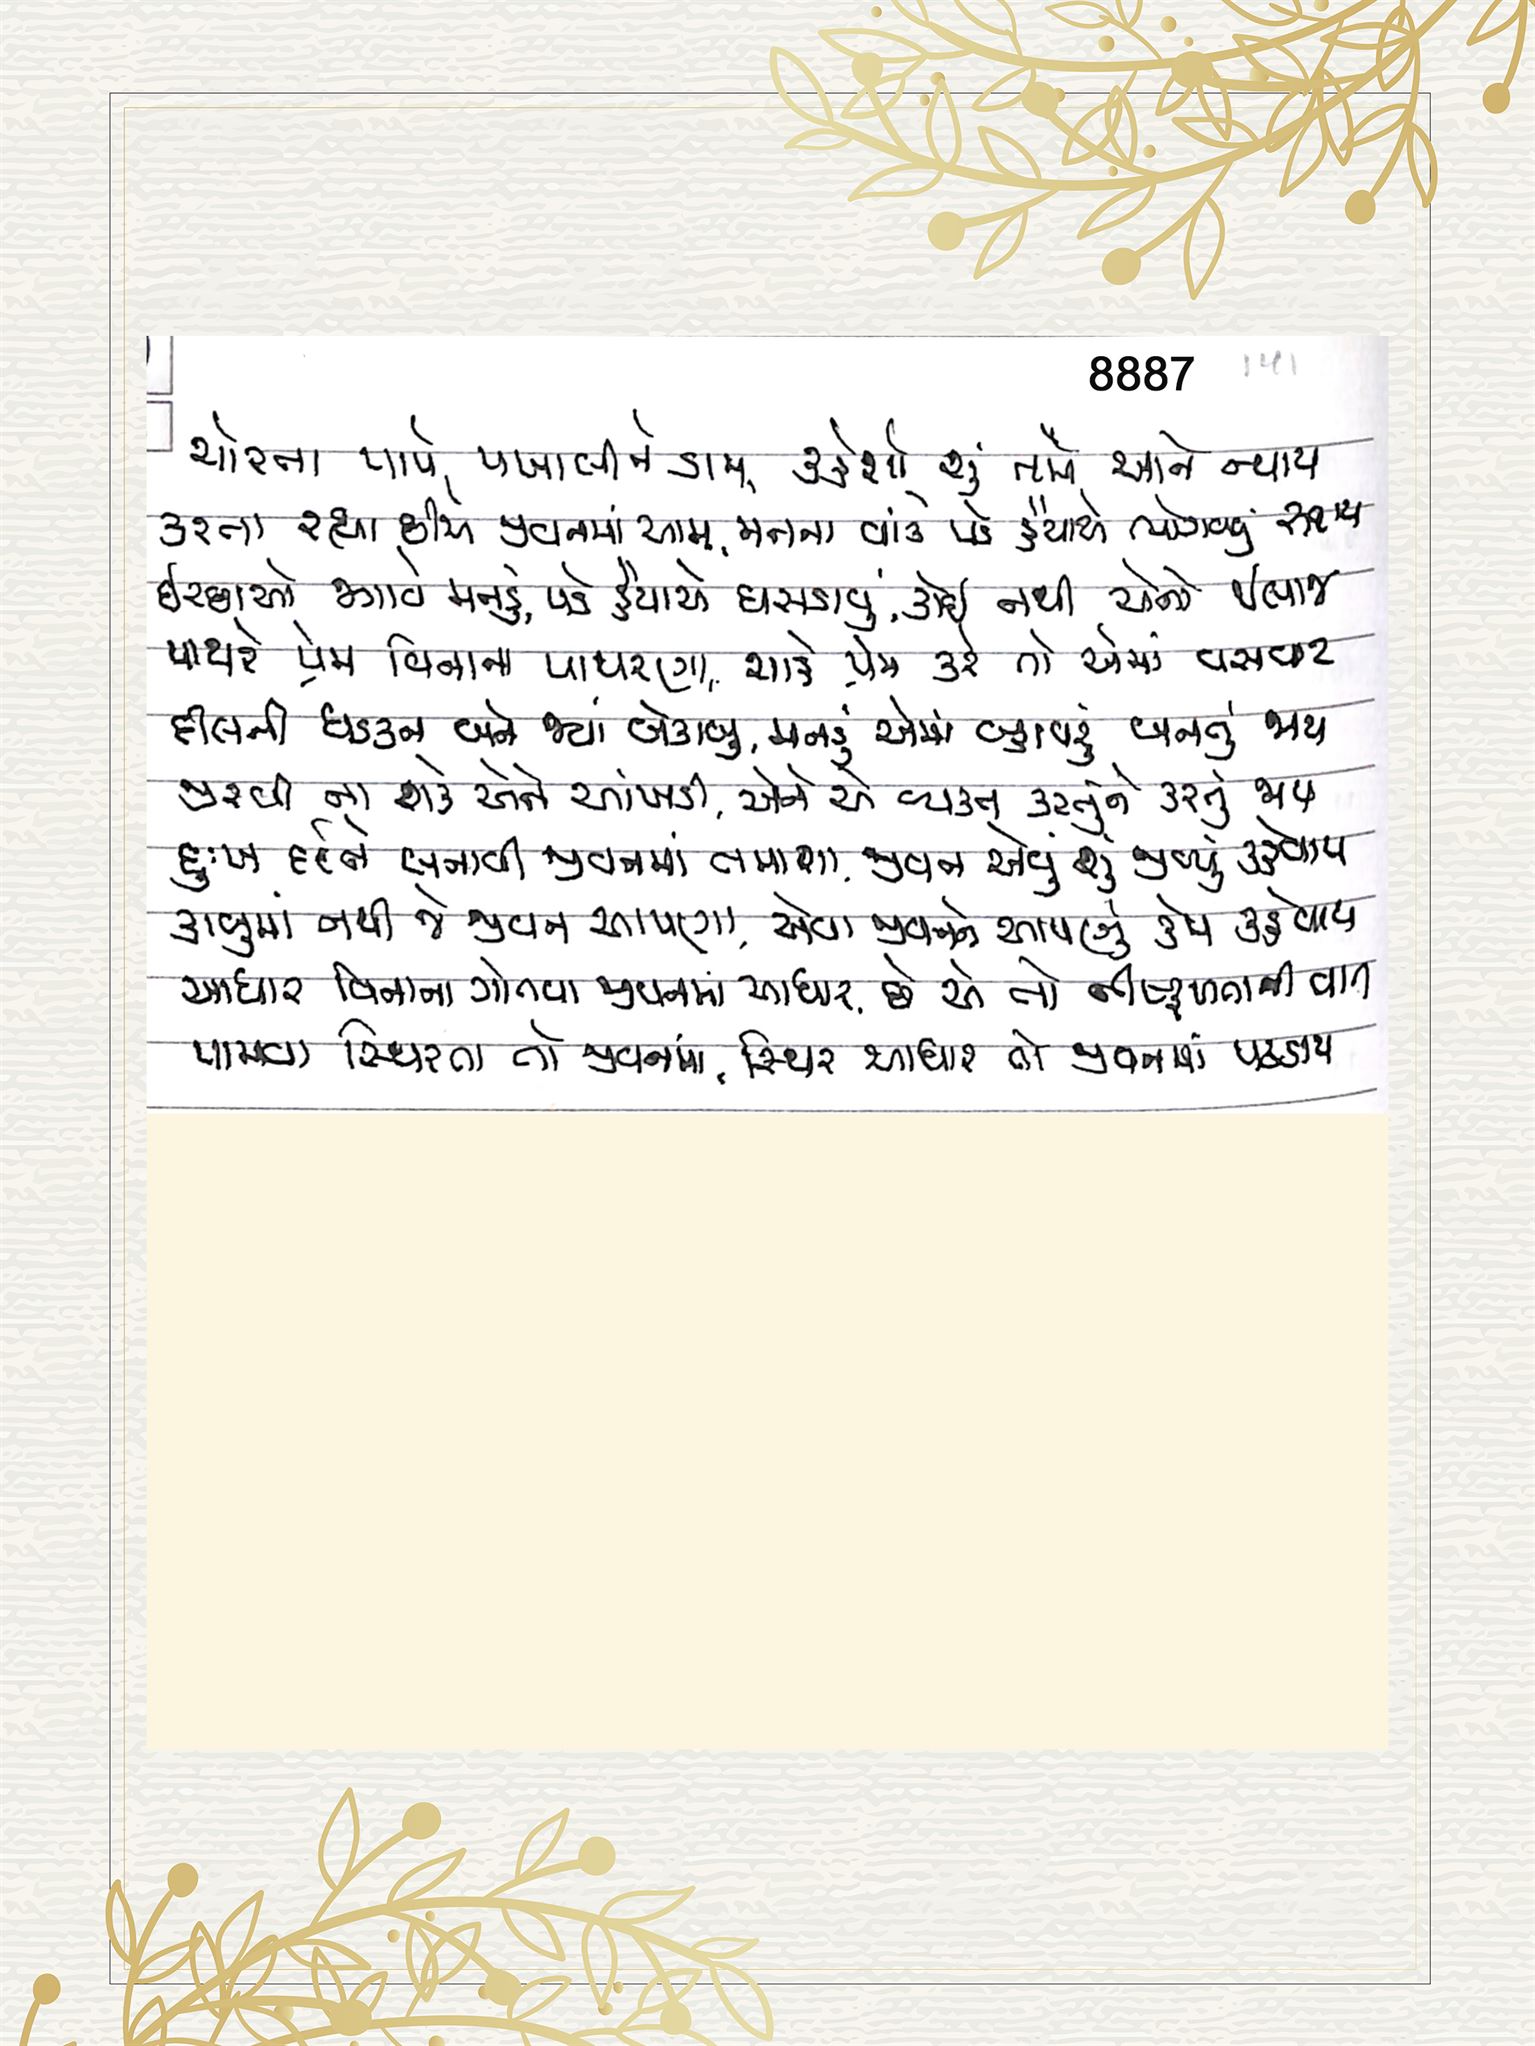 8887
141
ચોરના પાપે, પખાલીને ડામ, કહેશો શું તમે આને ન્યાય
કરતા રહ્યા છીએ જીવનમાં આમ, મનના વાંકે પડે હૈયાએ ભોગવવું સદાય
ઈચ્છાઓ જગાવે મનડું, પડે હૈયાએ ઘસડાવું, કોઈ નથી એનો ઈલાજ
પાથરે પ્રેમ વિનાના પાથરણા, શાને પ્રેમ કરે તો એમાં વસવાટ
દીલની ધડકન બને જ્યાં બેકાબુ, મનડું એમાં બહાવરું બનતું જાય
જીરવી ના શકે એને આંખડી, એને એ વ્યક્ત કરતુંને કરતું જાય
દુઃખ દર્દને બનાવી જીવનમાં તમાશા, જીવન એવું શું જીવ્યું કહેવાય
કાબુમાં નથી જે જીવન આપણા, એવા જીવનને આપણું કેમ કહેવાય
આધાર વિનાના ગોતવા જીવનમાં આધાર, છે એ તો નીષ્ફળતાની વાત
પામવા સ્થિરતા તો જીવનમાં, સ્થિર આધાર તો જીવનમાં પકડાય